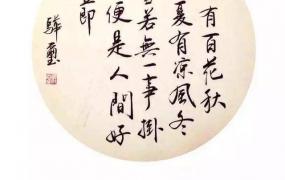 有百花秋
夏有凉風冬
若無一事掛
便是人間好
節